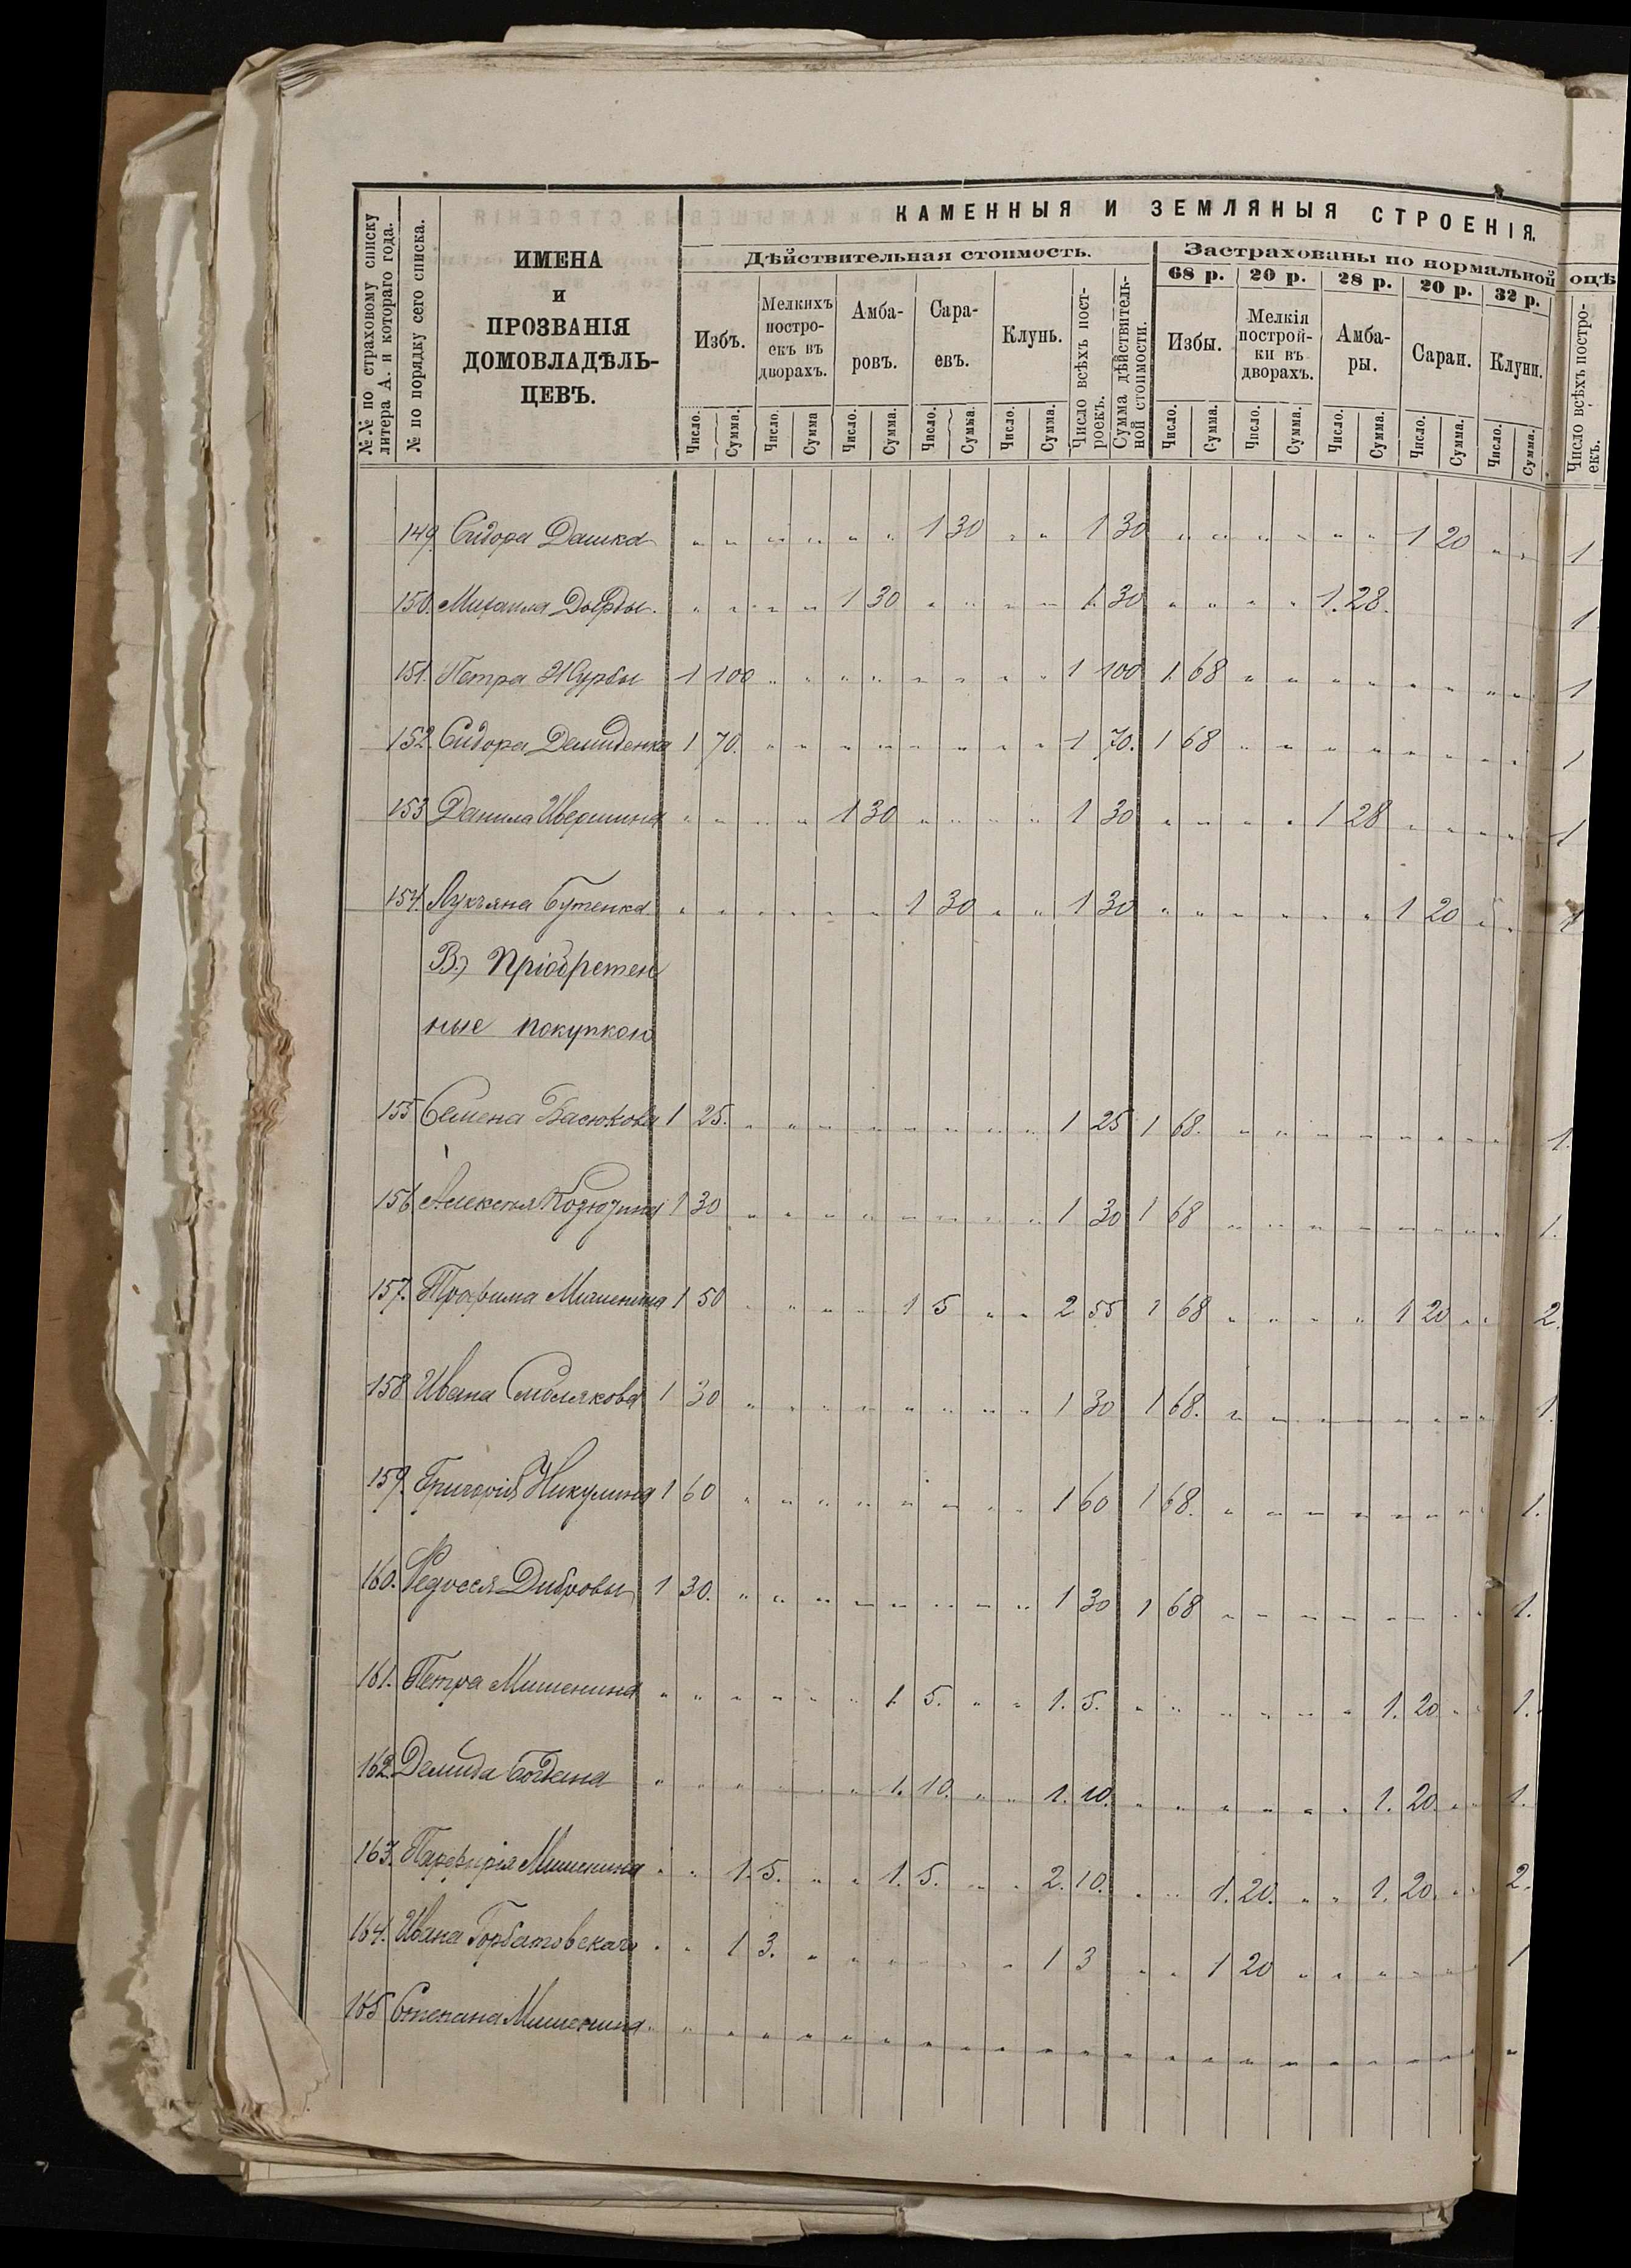 КАМЕННЫЯ И ЗЕМЛЯНЫЯ СТРОЕНІЯ.
№№ по страховому списку литера А. и котораго года.
№ по порядку сего списка.
ИМЕНА
и
ПРОЗВАНІЯ
ДОМОВЛАДѢЛЬ-
ЦЕВЪ.
Дѣйствительная стоимость.
Застрахованы по нормальной оцѣ
68 р. 20 р. 28 р. 20 р. 32 р.
Избъ.
Мелкихъ
постро-
екъ въ
дворахъ.
Амба-
ровъ.
Сара-
евъ.
Клунь.
Число всѣхъ пост-
роекъ.
Сумма дѣйствитель-
ной стоимости.
Избы.
Мелкія
построй-
ки въ
дворахъ.
Амба-
ры.
Сараи.
Клуни.
Число всѣхъ постро-
екъ.
Число. Сумма. Число. Сумма Число. Сумма. Число. Сумма. Число. Сумма. Число. Сумма. Число. Сумма. Число. Сумма. Число. Сумма. Число. Сумма.
149. Сидора Дашка " " " " " " 1 30 " " 1 30 " " " " " " 1 20 " " 1
150. Михаила " " " " 1 30 " " " " 1. 30 " " " " 1. 28. 1
151. Петра 1 100 " " " " " " " " 1 100 1. 68 " " " " " " " " 1
152. Сидора Демиденка 1 70. " " " " " " " " 1 70. 1 68 " " " " " " " " 1
153 Данила Ивершина " " " " 1 30 " " " " 1 30 " " " " 1 28 " " " " 1
154. Лукьяна Бутенка " " " " " " 1 30 " " 1 30 " " " " " " 1 20 " " 1
В.) Пріобретен
ные покупкою
155 Семена Васюкова 1 25. " " " " " " " " 1 25 1 68. " " " " " " " " 1.
156 Алексея 1 30 " " " " " " " " 1 30 1 68 " " " " " " " " 1.
157. Трофима Мишенина 1 50 " " " " 1 5 " " 2 55 1 68 " " " " 1 20 " " 2.
158 Ивана Смолякова 1 30 " " " " " " " " 1 30 1 68. " " " " " " " " 1.
159. Григорія Никулина 1 60 " " " " " " " " 1 60 1 68. " " " " " " " " 1.
160. Федосея Дибровы 1 30. " " " " " " " " 1 30 1 68 " " " " " " " " 1.
161. Петра Мишенина " " " " " " 1. 5. " " 1. 5. " " " " " " 1. 20 " " 1.
162. Демида " " " " " " 1. 10. " " 1. 10. " " " " " " 1. 20. " " 1.
163. Парфирія Мишенина " " 1. 5. " " 1. 5. " " 2. 10. " " 1. 20. " " 1. 20. " " 2.
164. Ивана Горбатовскаго " " 1 3. " " " " " " 1 3 " " 1 20 " " " " " " 1
165 Степана Мишенина " " " " " " " " " " " " " " " " " " " " " " "